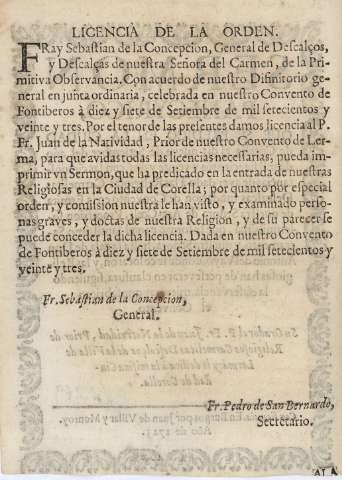 LICENCIA DE LA ORDEN.
FRay Sebastian de la Concepcion, General de Descalços,
y Descalças de nuestra Señora del Carmen, de la Pri-
mitiva Observancia. Con acuerdo de nuestro Difinitorio ge-
neral en junta ordinaria, celebrada en nuestro Convento de
Fontiberos à diez y siete de Setiembre de mil setecientos y
veinte y tres. Por el tenor de las presentes damos licencia al P.
Fr. Juan de la Natividad, Prior de nuestro Convento de Ler-
ma, para que avidas todas las licencias necessarias, pueda im-
primir vn Sermon, que ha predicado en la entrada de nuestras
Religiosas en la Ciudad de Corella; por quanto por especial
orden, y comission nuestra le han visto, y examinado perso-
nas graves, y doctas de nuestra Religion, y de su parecer se
puede conceder la dicha licencia. Dada en nuestro Convento
de Fontiberos à diez y siete de Setiembre de mil setecientos y
veinte y tres.
Fr. Sebastian de la Concepcion,
General.
Fr. Pedro de San Bernardo,
Secretario.
AL A